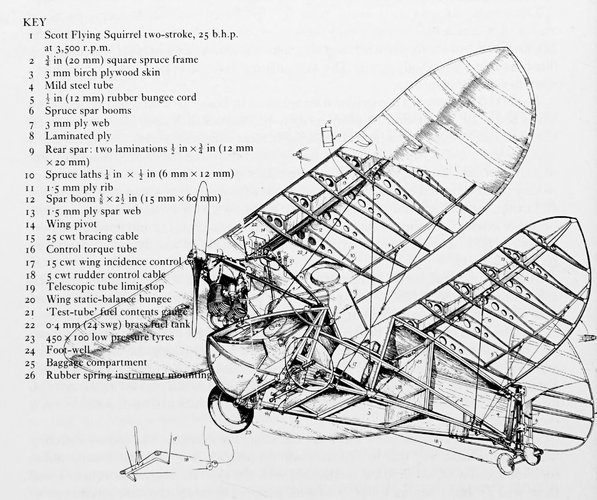 KEY
1 Scott Flying Squirrel two-stroke, 25 b.h.p.
at 3,500 r.p.m.
2 ¾ in (20 mm) square spruce frame
3 3 mm birch plywood skin
4 Mild steel tube
5 ½ in (12 mm) rubber bungee cord
6 Spruce spar booms
7 3 mm ply web
8 Laminated ply
9 Rear spar: two laminations ½ in × ¾ in (12 mm
× 20 mm)
10 Spruce laths ¼ in × ½ in (6 mm × 12 mm)
11 1·5 mm ply rib
12 Spar boom ⅝ × 2½ in (15 mm × 60 mm)
13 1·5 mm ply spar web
14 Wing pivot
15 25 cwt bracing cable
16 Control torque tube
17 15 cwt wing incidence control
18 5 cwt rudder control cable
19 Telescopic tube limit stop
20 Wing static-balance bungee
21 'Test-tube' fuel contents gauge
22 0·4 mm (24 swg) brass fuel tank
23 450 × 100 low pressure tyres
24 Foot-well
25 Baggage compartment
26 Rubber spring instrument mounting